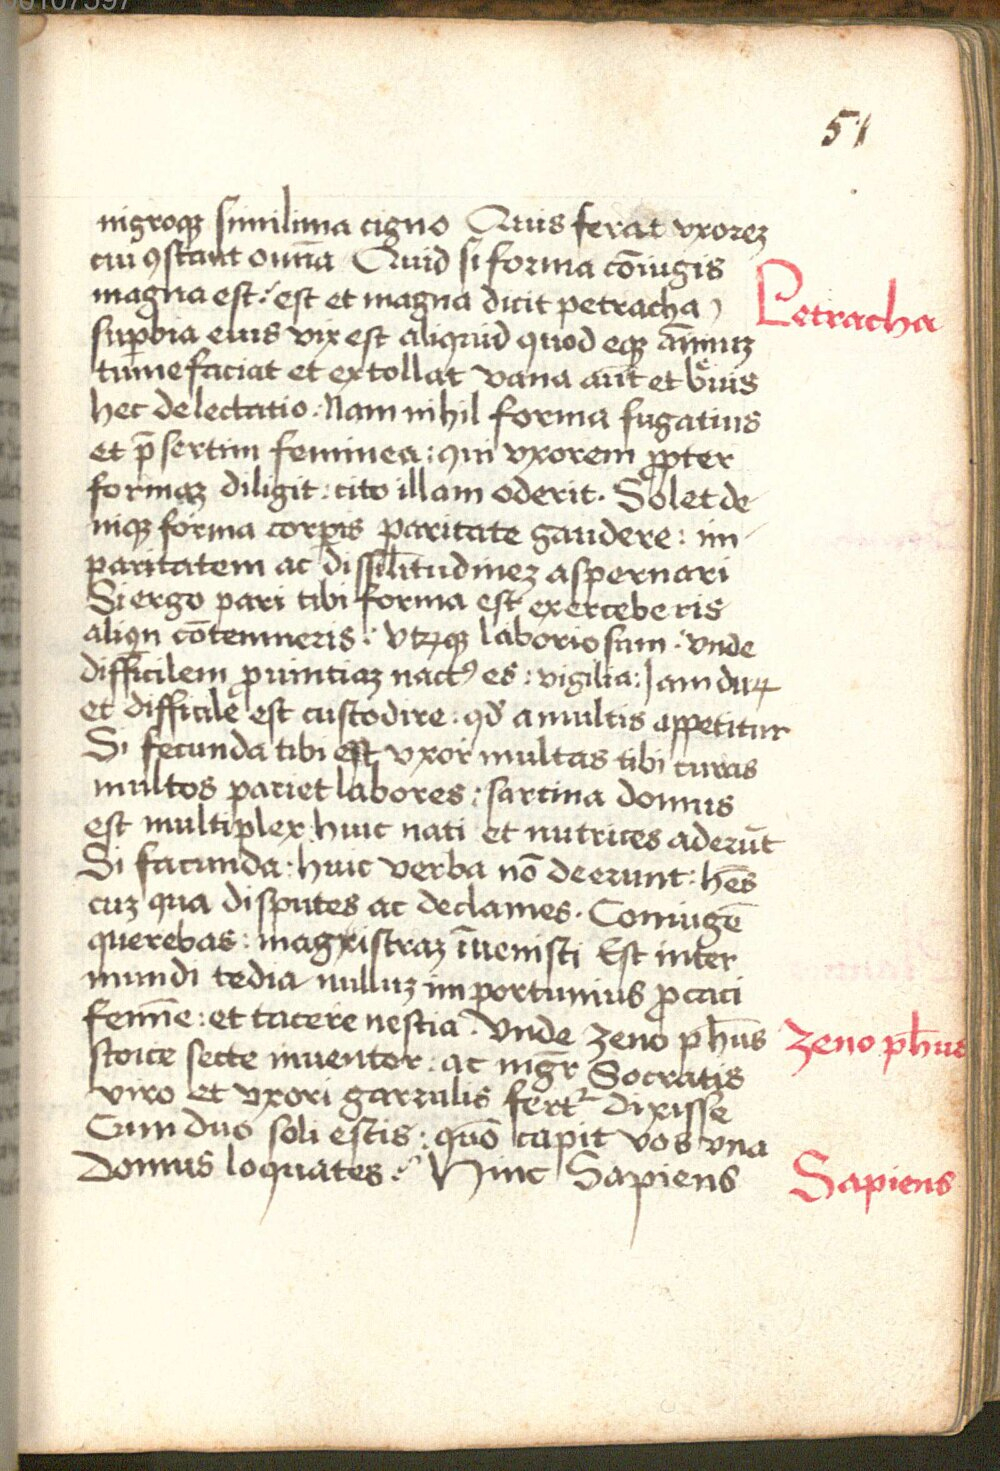 51
nigroqꝫ simillima cigno Quis ferat vxorez
cui ꝯstant omīa Quid si forma cōiugis
magna est: est et magna dicit petracha
Petracha
suꝑbia eius vix est aliquid quod eqꝫ aīmuz
tumefaciat et extollat vana aūt et bͤuis
hec delectatio: Nam nihil forma fugatius
et p̄sertim feminea: qui vxorem ꝓpter
formaz diligit: cito illam oderit. Solet de
niqꝫ forma corꝑis paritate gaudere: im
paritatem ac dissilitudinez aspernari
Si ergo pari tibi forma est exercebe ris
aliqn cōtemneris: vtrꝫqꝫ laboriosum. vnde
difficilem ꝓuintiaz nactꝰ es: vigilia: Jam duꝝ
et difficile est custodire: qd̄ a multis appetitur
Si fecunda tibi est vxor multas tibi curas
multos pariet labores: sarcina domus
est multiplex huic nati et nutrices aderūt
Si facunda: huic verba nō deerunt: hēs
cuz qua disputes ac declames. Coniugē
querebas: magistraz īuenisti Est inter
mundi tedia nulluz importunius ꝓcaci
femīe: et tacere nestia. vnde zeno ph̄us
zeno ph̄us
stoice secte inuentor: ac mḡr Socratis
viro et vxori garrulis fertᷣ dixisse
Cum duo soli estis: quō capit vos vna
domus loquates: Hinc Sapiens
Sapiens